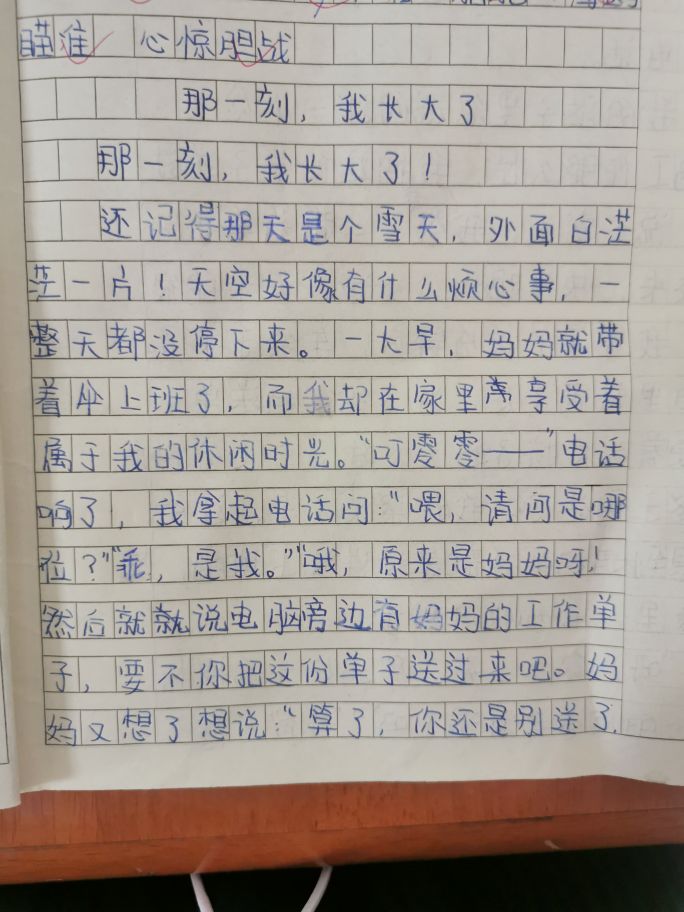 瞄准 心惊胆战
那一刻，我长大了
那一刻，我长大了！
还记得那天是个雪天，外面白茫
茫一片！天空好像有什么烦心事，一
整天都没停下来。一大早，妈妈就带
着伞上班了，而我却在家里享受着
属于我的休闲时光。“叮零零——”电话
响了，我拿起电话问：“喂，请问是哪
位？”“乖，是我。”“哦，原来是妈妈呀！
然后就就说电脑旁边有妈妈的工作单
子，要不你把这份单子送过来吧。妈
妈又想了想说：“算了，你还是别送了，